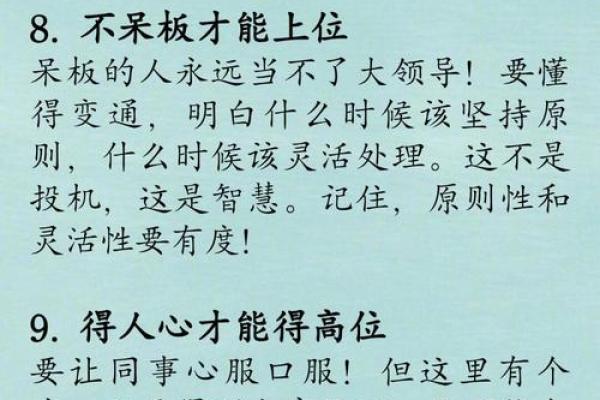 8. 不呆板才能上位
呆板的人永远当不了大领导！要懂
得变通，明白什么时候该坚持原
则，什么时候该灵活处理。这不是
投机，这是智慧。记住，原则性和
灵活性要有度！
9. 得人心才能得高位
要让同事心服口服！但这里有个